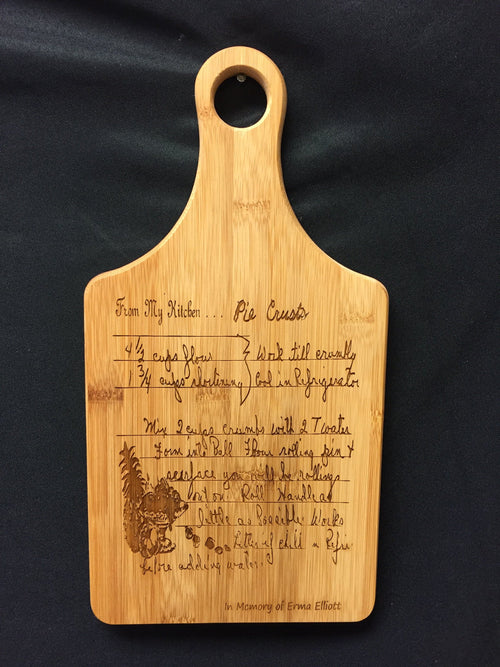 From My Kitchen . . . Pie Crusts
4 1/2 cups flour } Work till crumbly
1 3/4 cups shortening } Cool in Refrigerator
Mix 2 cups crumbs with 2 T water
Form into Ball Flour rolling pin &
surface you will be rolling
out on. Roll Handle as
little as Possible Works
if chill in Refri
before adding water.
In Memory of Erma Elliott